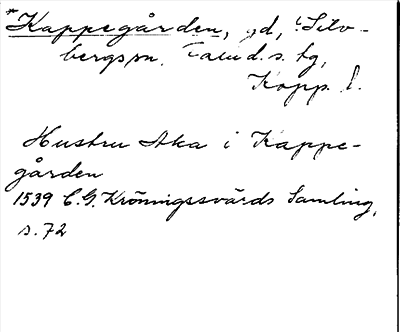 *Kappegården, gd, Silv-
bergs sn. Falu d. s. tg,
Kopp. l.
Hustru Aka i Kappe-
gården
1539 C.G. Krönnigssvärds Samling,
s. 72